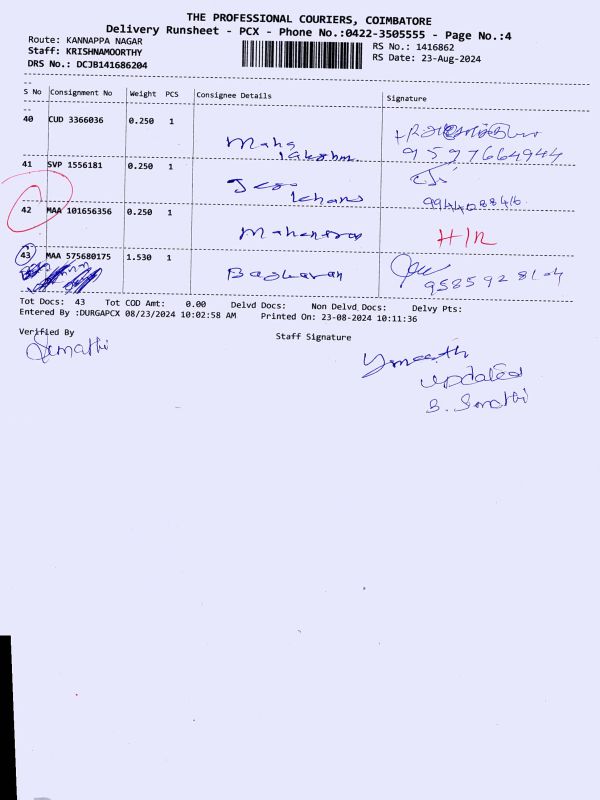 THE PROFESSIONAL COURIERS, COIMBATORE
Delivery Runsheet - PCX - Phone No.:0422-3505555 - Page No.:4
Route: KANNAPPA NAGAR
RS No.: 1416862
Staff: KRISHNAMOORTHY
RS Date: 23-Aug-2024
DRS No.: DCJB141686204
S No Consignment No Weight PCS Consignee Details Signature
40 CUD 3366036 0.250 1 Maha
lakshmi 9597664944
41 SVP 1556181 0.250 1
9944088416
42 MAA 101656356 0.250 1 H/R
43 MAA 575680175 1.530 1 Bagharan
9585928104
Tot Docs: 43 Tot COD Amt: 0.00 Delvd Docs: Non Delvd Docs: Delvy Pts:
Entered By :DURGAPCX 08/23/2024 10:02:58 AM Printed On: 23-08-2024 10:11:36
Verified By Staff Signature
Sumathi
updated
B. Sumathi